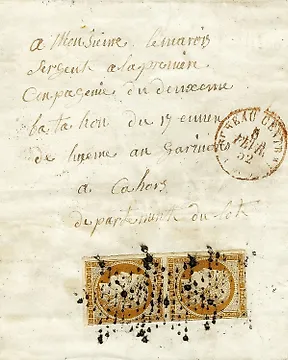 a Monsieur lemarois
sergent a la premier
Compagenie du deuxeme
batahon du 17 eume
de lineme an Garnido
a Cahors
departement du lot
BUREAU CENTRAL
6
FEVR.
52